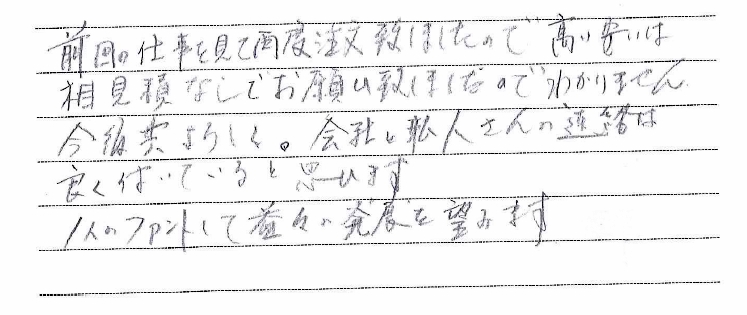 前回の仕事を見て再度注文致しましたので 高い安いは
相見積なしでお願い致しましたのでわかりません
今後共よろしく。会社と職人さんの連絡は
良く付いていると思います
1人のファンとして益々の発展を望みます